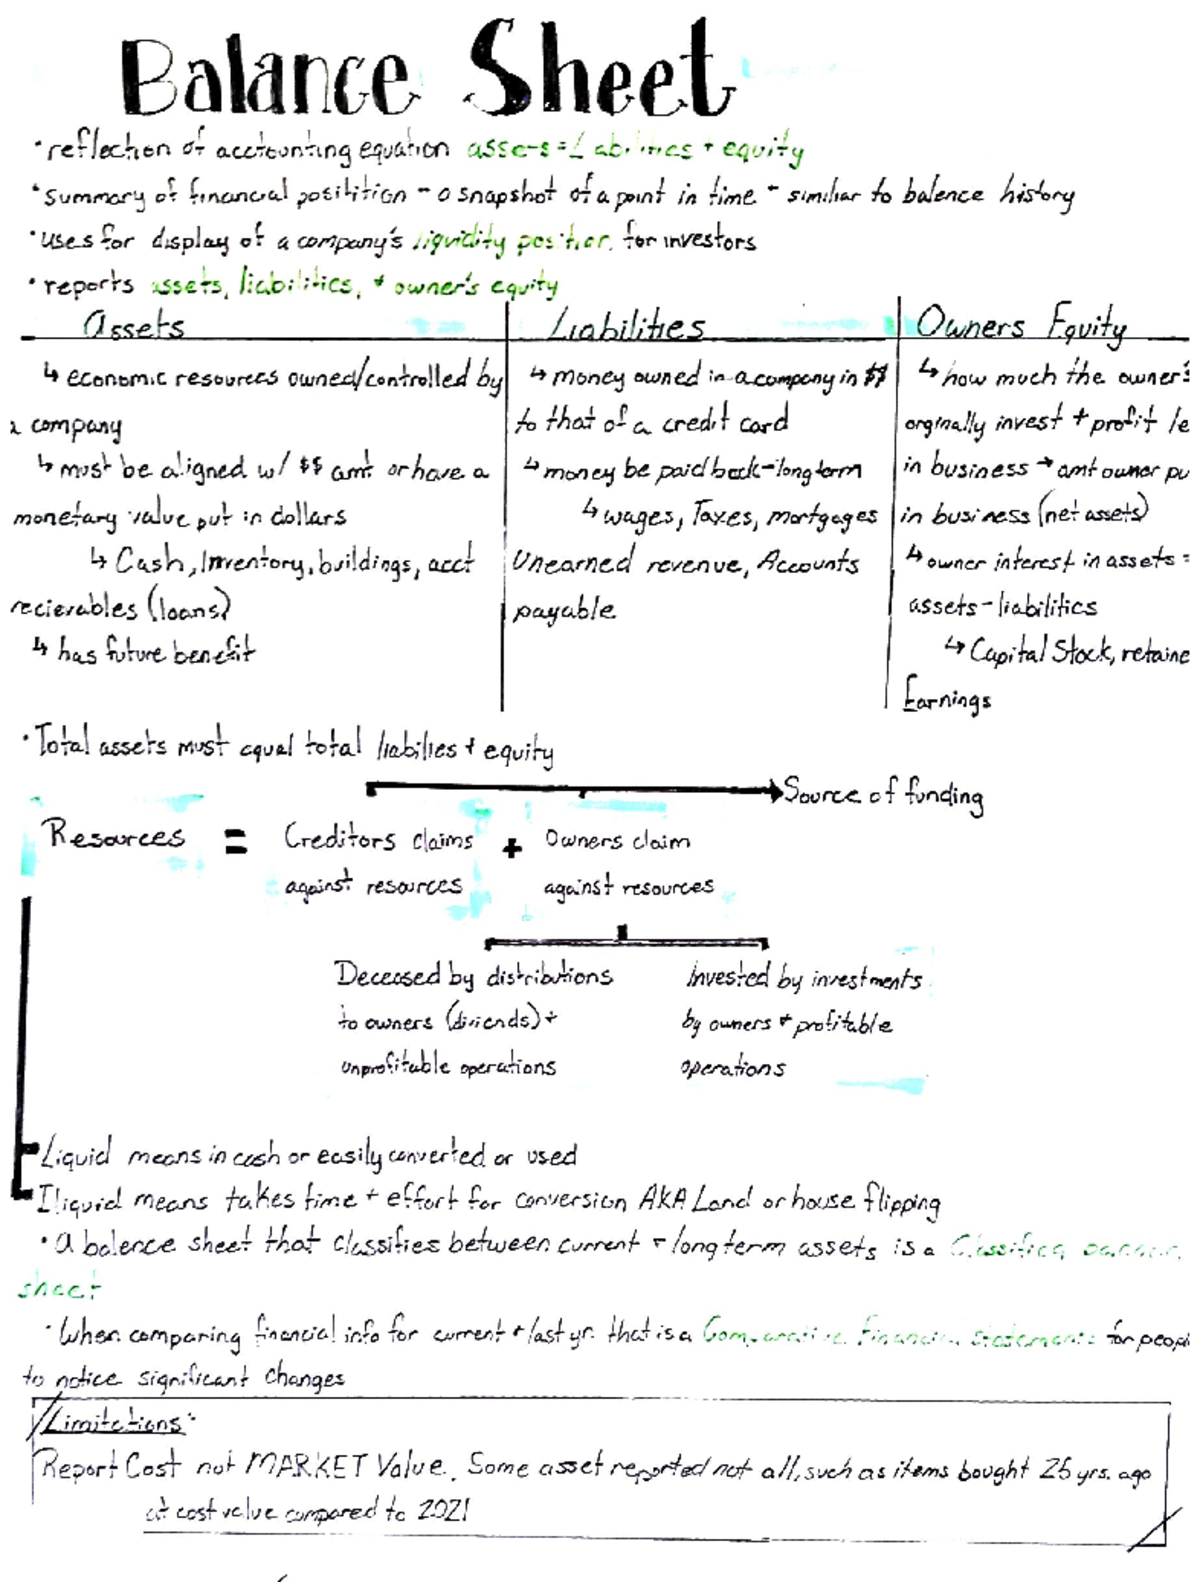 Balance Sheet
·reflection of acctounting equation assets = Liabilities + equity
·summary of financial positition - a snapshot of a point in time - similiar to balence history
·uses for display of a company's liquidity position for investors
·reports assets, liabilities, + owner's equity
Assets
↳ economic resources owned/controlled by
a company
↳ must be aligned w/ $$ amt or have a
monetary value put in dollars
↳ Cash, Inventory, buildings, acct
recierables (loans)
↳ has future benefit
Liabilities
↳ money owned in a company in $$
to that of a credit card
↳ money be paid back - long term
↳ wages, Taxes, mortgages
Unearned revenue, Accounts
payable
Owners Equity
↳ how much the owner's
orginally invest + profit le
in business → amt owner pu
in business (net assets)
↳ owner interest in assets =
assets - liabilities
↳ Capital Stock, retaine
Earnings
·Total assets must equal total liabilies + equity
Source of funding
Resources = Creditors claims + Owners claim
against resources against resources
Deceased by distributions Invested by investments
to owners (diviends) + by owners + profitable
unprofitable operations operations
Liquid means in cash or easily converted or used
Iliquid means takes time + effort for conversion AKA Land or house flipping
·A balence sheet that classifies between current + long term assets is a Classified
sheet
·When comparing financial info for current + last yr. that is a Comparative Financial Statements for peopl
to notice significant changes
Limitations:
Report Cost not MARKET Value. Some asset reported not all, such as items bought 25 yrs. ago
at cost value compared to 2021